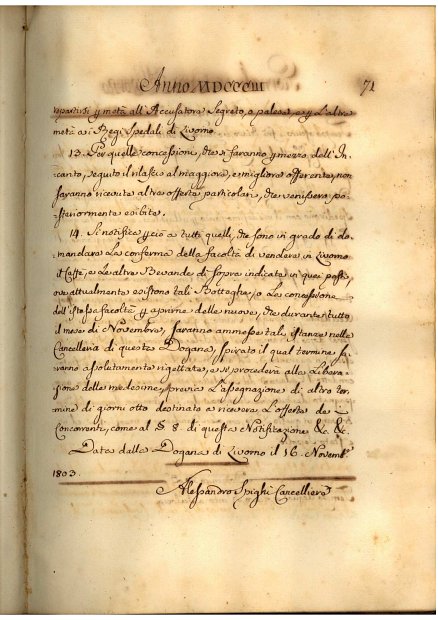 Anno MDCCCIII 71
repartirsi p metà all'Accusatore Segreto, o palese, e p l'altra
metà ai Regi Spedali di Livorno
13. Per quelle concessioni, che si faranno p mezzo dell'In-
canto, seguito il rilascio al maggiore, e migliore offerente, non
saranno ricevute altre offerte particolari, che venissero po-
steriormente esibite.
14. Si notifica p ciò a tutti quelli, che sono in grado di do-
mandare la conferma della facoltà di vendere in Livorno
il Caffè, e le altre Bevande di sopra indicate in quei posti,
ove attualmente esistono tali Botteghe, o la concessione
dell'istessa facoltà p aprirne delle nuove, che durante tutto
il mese di Novembre, saranno ammesse tali istanze nella
Cancelleria di questa Dogana, spirato il qual termine sa-
ranno assolutamente rigettate, e si procederà alla Libera-
zione delle medesime, previa l'assegnazione di altro ter-
mine di giorni otto destinato a ricevere l'offerte de i
Concorrenti, come al § 8 di questa Notificazione &c &c
Data dalla Dogana di Livorno il 16. Novemb.
1803.
Alessandro Spighi Cancelliere